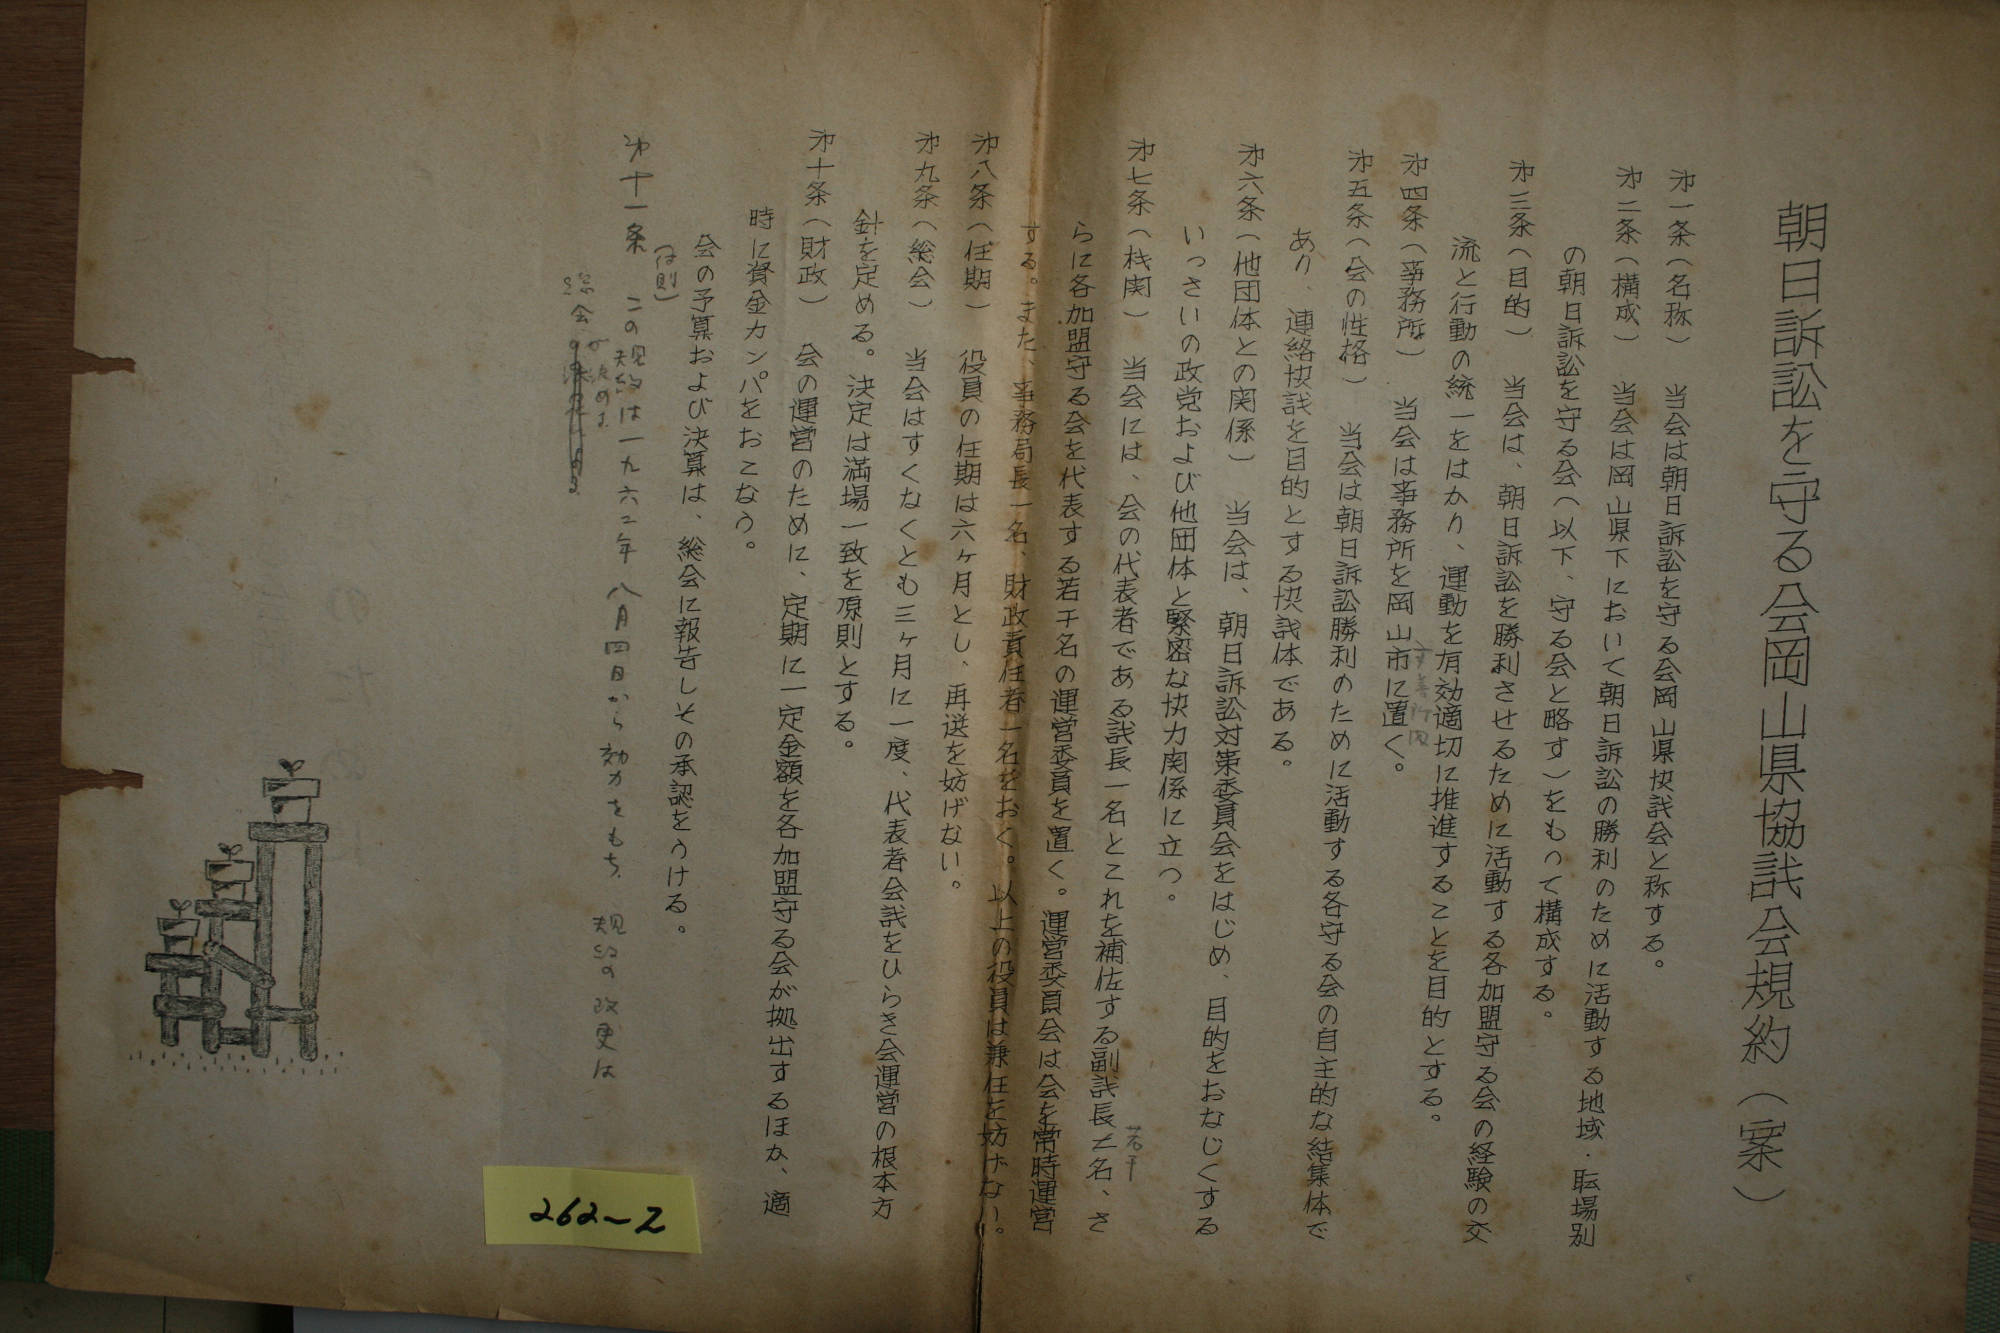 朝日訴訟を守る会岡山県協議会規約（案）
第一条（名称）　当会は朝日訴訟を守る会岡山県協議会と称する。
第二条（構成）　当会は岡山県下において朝日訴訟の勝利のために活動する地域・職場別
の朝日訴訟を守る会（以下、守る会と略す）をもって構成する。
第三条（目的）　当会は、朝日訴訟を勝利させるために活動する各加盟守る会の経験の交
流と行動の統一をはかり、運動を有効適切に推進することを目的とする。
第四条（事務所）　当会は事務所を岡山市に置く。
第五条（会の性格）　当会は朝日訴訟勝利のために活動する各守る会の自主的な結集体で
あり、連絡協議を目的とする協議体である。
第六条（他団体との関係）　当会は、朝日訴訟対策委員会をはじめ、目的をおなじくする
いっさいの政党および他団体と緊密な協力関係に立つ。
第七条（機関）　当会には、会の代表者である議長一名とこれを補佐する副議長二名、さ
若干
らに各加盟守る会を代表する若干名の運営委員を置く。運営委員会は会を常時運営
する。また、事務局長一名、財政責任者一名をおく。以上の役員は兼任を妨げない。
第八条（任期）　役員の任期は六ヶ月とし、再選を妨げない。
第九条（総会）　当会はすくなくとも三ヶ月に一度、代表者会議をひらき会運営の根本方
針を定める。決定は満場一致を原則とする。
第十条（財政）　会の運営のために、定期に一定金額を各加盟守る会が拠出するほか、適
時に資金カンパをおこなう。
会の予算および決算は、総会に報告しその承認をうける。
（付則）
第十一条　この規約は一九六二年八月四日から効力をもち、規約の改更は
総会が決める
262-2